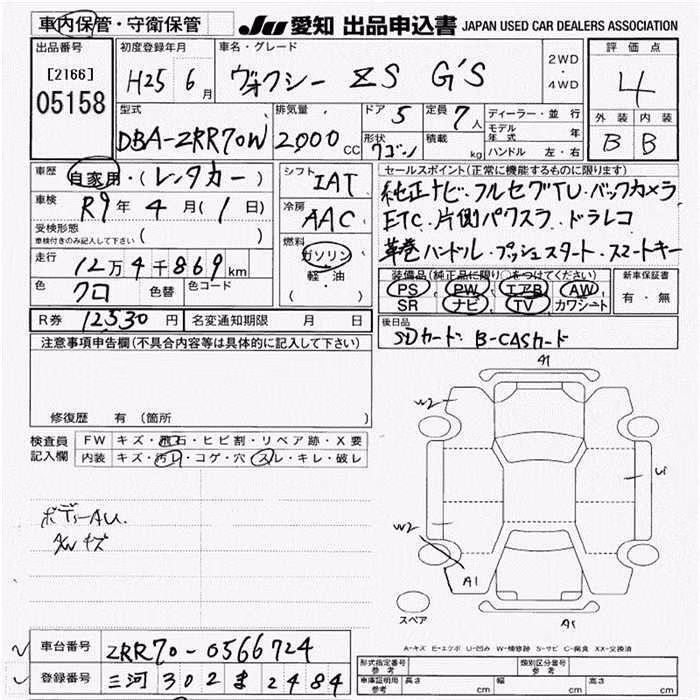 車内保管・守衛保管
JU 愛知 出品申込書 JAPAN USED CAR DEALERS ASSOCIATION
出品番号
[2166]
05158
初度登録年月
H25 6月
車名・グレード
ヴォクシー ZS G'S
2WD
・
4WD
評価点
4
外装 内装
B B
型式
DBA-ZRR70W
排気量
2000 CC
ドア 5
形状
ワゴン
定員 7人
積載 kg
ディーラー・並行
モデル年式 年
ハンドル 左・右
車歴
自家用・(レンタカー)
車検
R9年 4月(1日)
受検形態
車検付きのみ記入して下さい ( )
走行
12万4千869km
色
クロ
色替
色コード
シフト
IAT
冷房
AAC
燃料
ガソリン
軽・油
( )
セールスポイント(正常に機能するものに限ります)
純正ナビ・フルセグTV・バックカメラ
ETC・片側パワスラ・ドラレコ
革巻ハンドル・プッシュスタート・スマートキー
装備品(純正品に限り○をつけてください)
PS PW エアB AW
SR ナビ TV カワシート
新車保証書
有・無
R券 12530円
名変通知期限 月 日
後日品
SDカード・B-CASカード
注意事項申告欄(不具合内容等は具体的に記入して下さい)
修復歴 有(箇所
検査員
記入欄
FW キズ・飛石・ヒビ割・リペア跡・X要
内装 キズ・汚レ・コゲ・穴・スレ・キレ・破レ
ボディーAU.
A/Wキズ
A1
W2
U1
W2
A1
A1
スペア
A-キズ E-エクボ U-凹み W-補修跡 S-サビ C-腐食 XX-交換済
車台番号 ZRR70-0566724
登録番号 三河 302 ま 2484
形式指定番号
参考
類別区分番号
参考
車庫証明用
参考
長さ cm 幅 cm 高さ cm